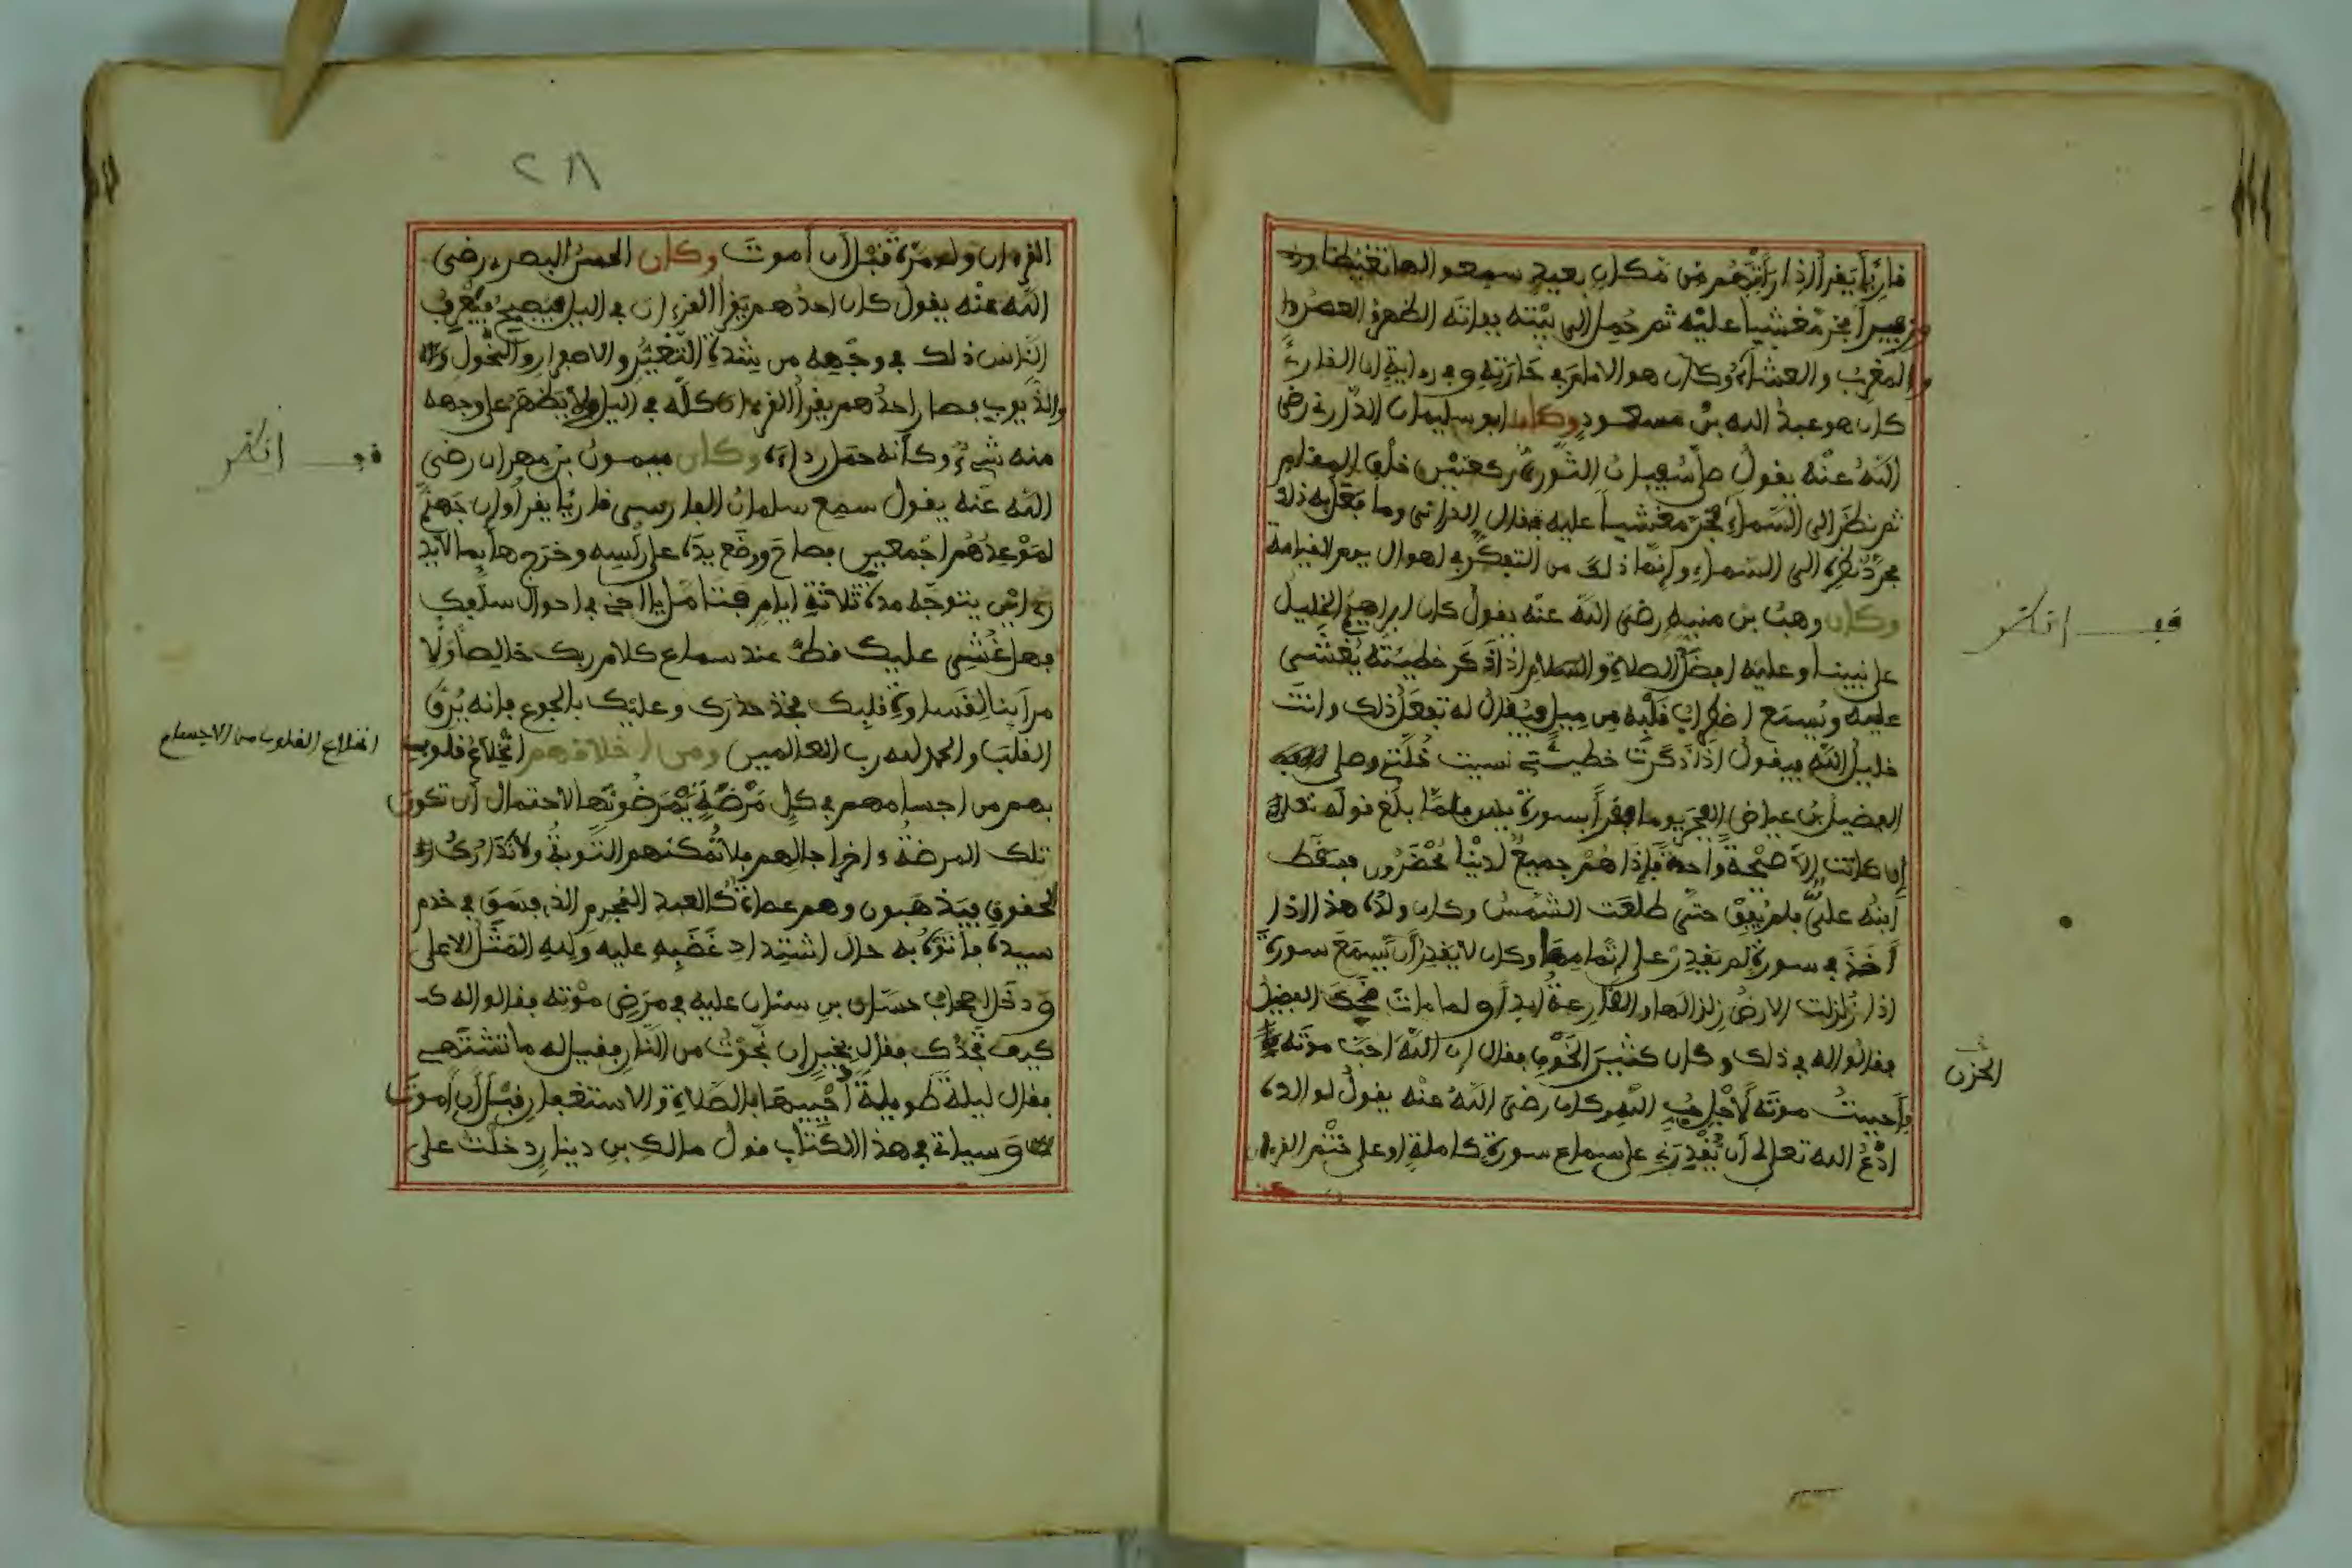 قارئا يقرأ إذا رأتهم من مكان بعيد سمعوا لها تغيظا
وزفيرا فخر مغشيا عليه ثم حمل إلى بيته ففاته الظهر والعصر
والمغرب والعشاء وكان هو الإمام في حارته وفي رواية إن القارئ
كان هو عبد الله بن مسعود وكان أبو سليمان الداراني رضي
الله عنه يقول صلى سفيان الثوري ركعتين خلف المقام
ثم نظر إلى السماء فخر مغشيا عليه فقال الداراني وما فعل به ذلك
مجرد نظره إلى السماء وإنما ذلك من التفكر في أهوال يوم القيامة
وكان وهب بن منبه رضي الله عنه يقول كان إبراهيم الخليل
على نبينا وعليه أفضل الصلاة والسلام إذا ذكر خطيئته يغشى
عليه ويسمع اضطراب قلبه من ميل فيقال له تفعل ذلك وأنت
خليل الله فيقول إذا ذكرت خطيئتي نسيت خلتي وصلى
الفضيل بن عياض الفجر يوما فقرأ بسورة يس فلما بلغ قوله تعالى
إن كانت إلا صيحة واحدة فإذا هم جميع لدينا محضرون فسقط
ابنه علي فلم يفق حتى طلعت الشمس وكان ولده هذا إذا
أخذ في سورة لم يقدر على إتمامها وكان لا يقدر أن يسمع سورة
إذا زلزلت الأرض زلزالها والقارعة أبدا ولما مات ضحك الفضيل
فقالوا له في ذلك وكان كثير الخوف فقال إن الله أحب موته
فأحببت موته لأجل حب الله وكان رضي الله عنه يقول لوالده
ادع الله تعالى أن يقدرني على سماع سورة كاملة أو على ختم القرآن
قف انظر
الحزن
٢٨
القرآن ولو مرة قبل أن أموت وكان الحسن البصري رضي
الله عنه يقول كان أحدهم يقرأ القرآن في الليل فيصبح فيعرف
الناس ذلك في وجهه من شدة التغير والاصفرار والنحول
والذبوب فصار أحدهم يقرأ القرآن كله في الليل ولا يظهر على وجهه
منه شيء وكأنه حمل رداءه وكان ميمون بن مهران رضي
الله عنه يقول سمع سلمان الفارسي قارئا يقرأ وإن جهنم
لموعدهم أجمعين فصاح ووضع يده على رأسه وخرج هائما لا يد
ري أين يتوجه مدة ثلاثة أيام فتأمل يا أخي في أحوال سلفك
فهل غشي عليك قط عند سماع كلام ربك خالصا ولا
مرأينا لقساوة قلبك فخذ حذرك وعليك بالجوع فإنه يرق
القلب والحمد لله رب العالمين ومن أخلاقهم انخلاع قلوب
بهم من أجسامهم في كل مرضة يمرضونها لاحتمال أن تكون
تلك المرضة آخر آجالهم فلا تمكنهم التوبة ولا تدارك
الحقوق فيذهبون وهم عصاة كالعبد المجرم الذي فسق في خدم
سيده فأتوه به حال اشتداد غضبه عليه ولله المثل الأعلى
ودخل أصحاب حسان بن سنان عليه في مرض موته فقالوا له كـ
كيف تجدك فقال بخير إن نجوت من النار فقيل له ما تشتهي
فقال ليلة طويلة أحييها بالصلاة والاستغفار قبل أن أموت
وسيأتي في هذا الكتاب قول مالك بن دينار دخلت على
قف انظر
انخلاع القلوب من الأجسام